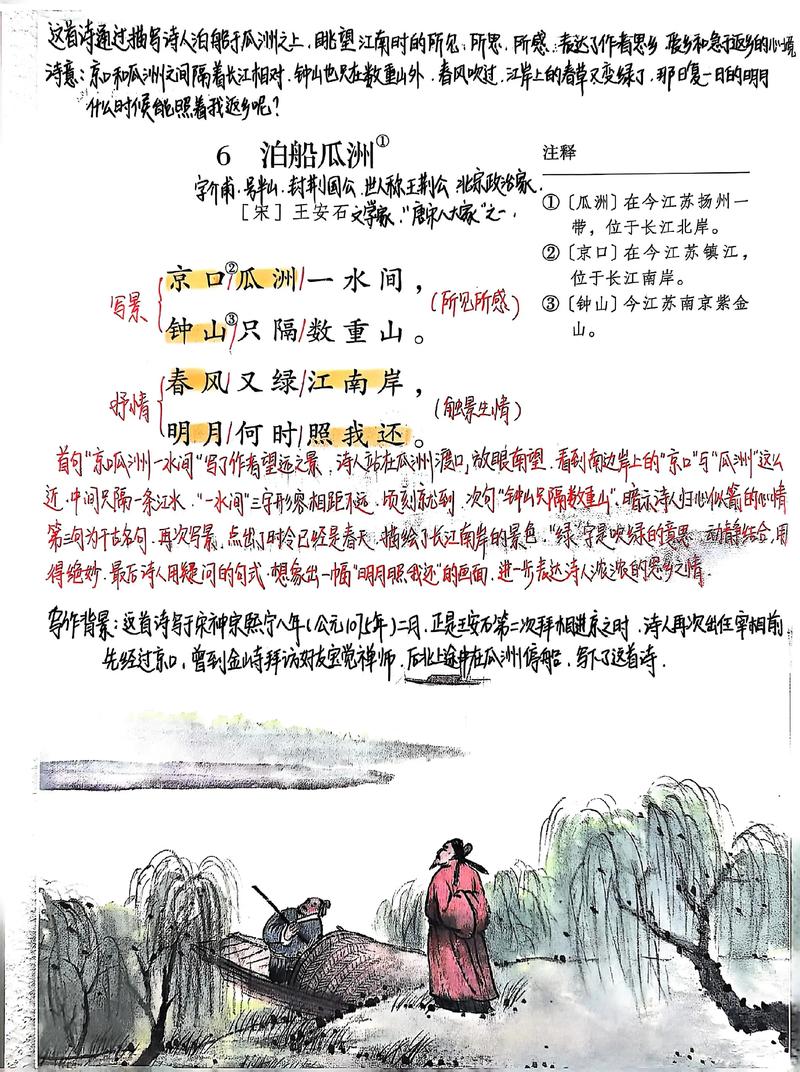 这首诗通过描写诗人泊船于瓜洲之上,眺望江南时的所见、所思、所感,表达了作者思乡、爱乡和急于返乡的心境
诗意:京口和瓜洲之间隔着长江相对,钟山也只在数重山外,春风吹过,江岸上的春草又变绿了,那日复一日的明月
什么时候能照着我返乡呢?
6 泊船瓜洲①
字介甫,号半山,封荆国公,世人称王荆公,北宋政治家、
[宋]王安石 文学家,“唐宋八大家”之一.
京口②/瓜洲/一水间,
钟山③/只隔/数重山。
写景
(所见所感)
春风/又绿/江南岸,
明月/何时/照我还。
抒情
(触景生情)
注释
①〔瓜洲〕在今江苏扬州一
带,位于长江北岸。
②〔京口〕在今江苏镇江,
位于长江南岸。
③〔钟山〕今江苏南京紫金
山。
首句“京口瓜洲一水间”写了作者望远之景,诗人站在瓜洲渡口,放眼南望,看到南边岸上的“京口”与“瓜洲”这么
近,中间只隔一条江水.“一水间”三字形容相距不远,顷刻就到.次句“钟山只隔数重山”,暗示诗人归心似箭的心情
第三句为千古名句,再次写景,点出了时令已经是春天,描绘了长江南岸的景色.“绿”字是吹绿的意思,动静结合,用
得绝妙.最后诗人用疑问的句式,想象出一幅“明月照我还”的画面,进一步表达诗人浓浓的思乡之情.
写作背景:这首诗写于宋神宗熙宁八年(公元1075年)二月,正是王安石第二次拜相进京之时,诗人再次出任宰相前,
先经过京口,曾到金山寺拜访好友宝觉禅师,后北上途中在瓜洲停船,写下了这首诗.